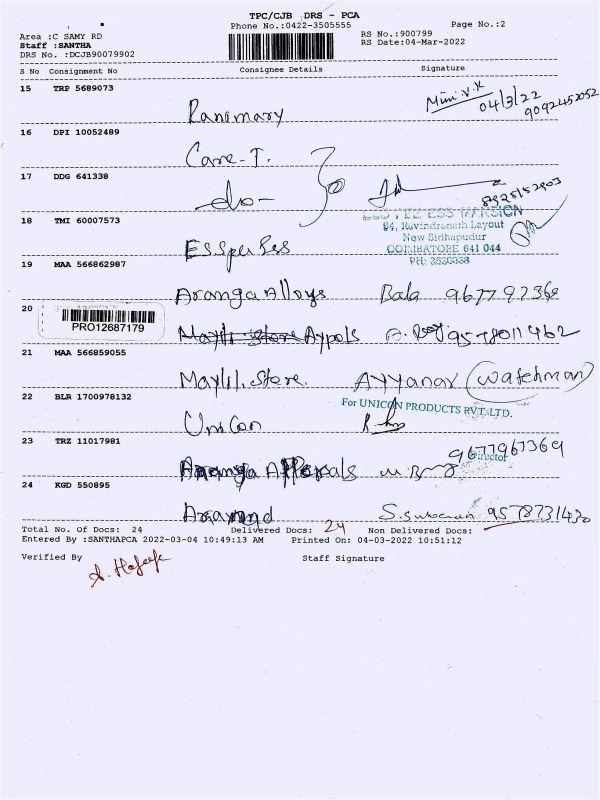 TPC/CJB DRS - PCA
Phone No.:0422-3505555
Page No.:2
Area :C SAMY RD
Staff :SANTHA
DRS No. :DCJB90079902
RS No.:900799
RS Date:04-Mar-2022
S No Consignment No Consignee Details Signature
15 TRP 5689073 Ranimary Mini V.K 04/3/22 9092452052
16 DPI 10052489 Care-T.
17 DDG 641338 -do-
18 TMI 60007573
MANSION
84, Ravindranath Layout
New Sidhapudur
COIMBATORE 641 044
19 MAA 566862987 Aranga Alloys Bala
20 PRO12687179 Aypols 9578011462
21 MAA 566859055 Maylil. Store. Ayyanar (Watchman)
22 BLR 1700978132 Unicon
For UNICON PRODUCTS PVT.LTD.
Director
23 TRZ 11017981 9677967369
24 KGD 550895 9578731430
Total No. Of Docs: 24 Delivered Docs: 24 Non Delivered Docs:
Entered By :SANTHAPCA 2022-03-04 10:49:13 AM Printed On: 04-03-2022 10:51:12
Verified By Staff Signature